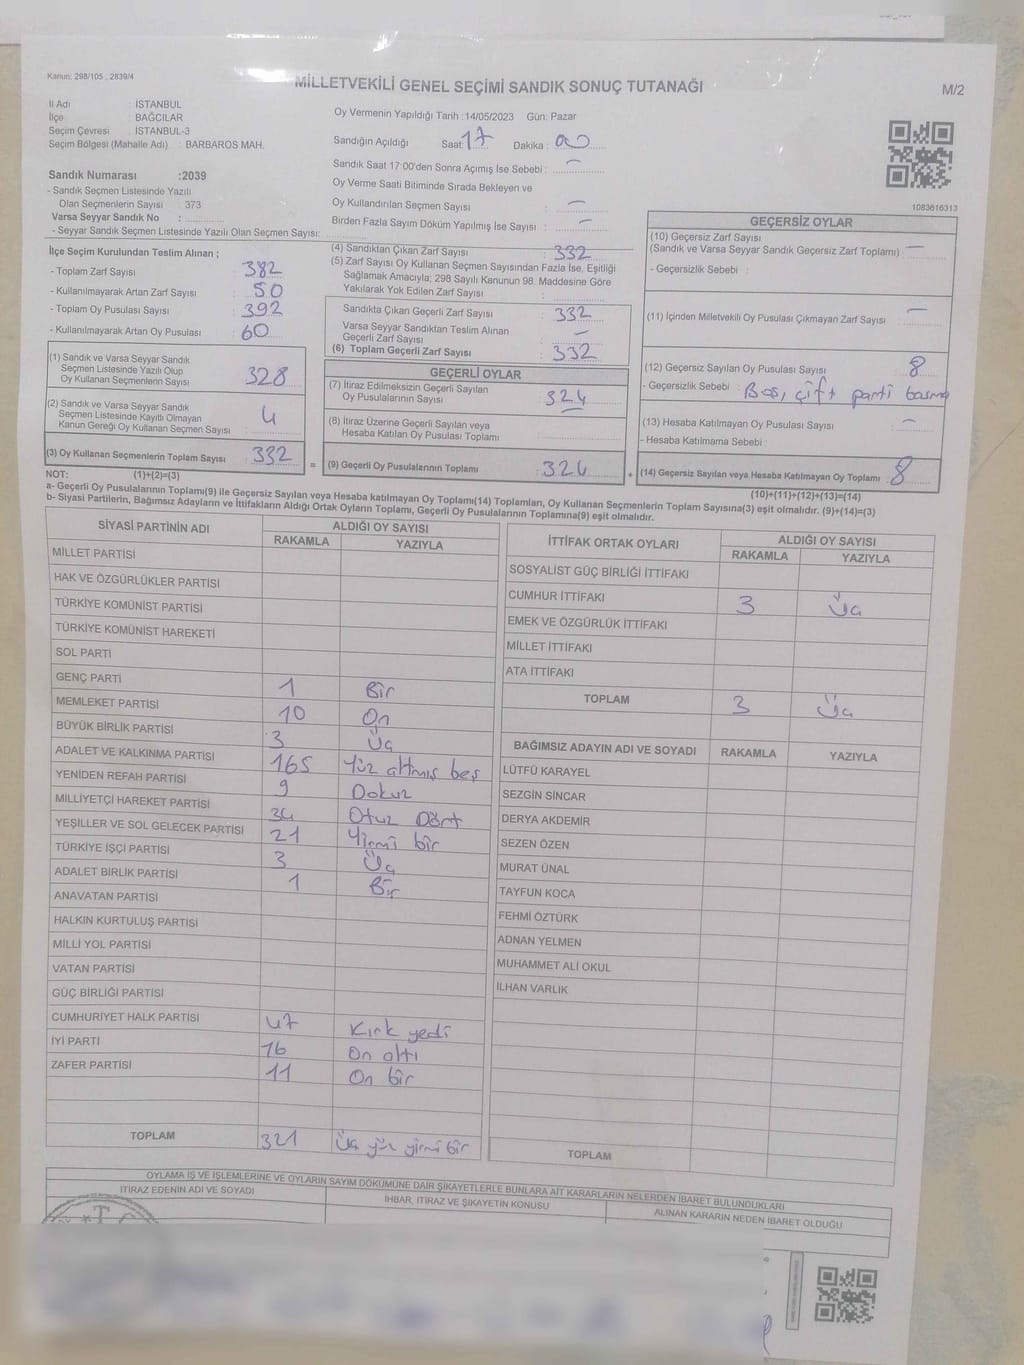 Kanun: 298/105 , 2839/4
MİLLETVEKİLİ GENEL SEÇİMİ SANDIK SONUÇ TUTANAĞI
M/2
İl Adı : İSTANBUL
İlçe : BAĞCILAR
Seçim Çevresi : İSTANBUL-3
Seçim Bölgesi (Mahalle Adı) : BARBAROS MAH.
Sandık Numarası :2039
- Sandık Seçmen Listesinde Yazılı
Olan Seçmenlerin Sayısı 373
Varsa Seyyar Sandık No :
- Seyyar Sandık Seçmen Listesinde Yazılı Olan Seçmen Sayısı:
Oy Vermenin Yapıldığı Tarih :14/05/2023 Gün: Pazar
Sandığın Açıldığı Saat: 17 Dakika: 00
Sandık Saat 17:00'den Sonra Açımış İse Sebebi : -
Oy Verme Saati Bitiminde Sırada Bekleyen ve
Oy Kullandırılan Seçmen Sayısı : -
Birden Fazla Sayım Döküm Yapılmış İse Sayısı : -
1083616313
İlçe Seçim Kurulundan Teslim Alınan ;
- Toplam Zarf Sayısı : 382
- Kullanılmayarak Artan Zarf Sayısı : 50
- Toplam Oy Pusulası Sayısı : 392
- Kullanılmayarak Artan Oy Pusulası : 60
(1) Sandık ve Varsa Seyyar Sandık
Seçmen Listesinde Yazılı Olup
Oy Kullanan Seçmenlerin Sayısı : 328
(2) Sandık ve Varsa Seyyar Sandık
Seçmen Listesinde Kayıtlı Olmayan
Kanun Gereği Oy Kullanan Seçmen Sayısı : 4
(3) Oy Kullanan Seçmenlerin Toplam Sayısı : 332
(4) Sandıktan Çıkan Zarf Sayısı : 332
(5) Zarf Sayısı Oy Kullanan Seçmen Sayısından Fazla İse, Eşitliği
Sağlamak Amacıyla; 298 Sayılı Kanunun 98. Maddesine Göre
Yakılarak Yok Edilen Zarf Sayısı :
Sandıkta Çıkan Geçerli Zarf Sayısı : 332
Varsa Seyyar Sandıktan Teslim Alınan
Geçerli Zarf Sayısı : -
(6) Toplam Geçerli Zarf Sayısı : 332
GEÇERLİ OYLAR
(7) İtiraz Edilmeksizin Geçerli Sayılan
Oy Pusulalarının Sayısı : 324
(8) İtiraz Üzerine Geçerli Sayılan veya
Hesaba Katılan Oy Pusulası Toplamı :
= (9) Geçerli Oy Pusulalarının Toplamı : 324
GEÇERSİZ OYLAR
(10) Geçersiz Zarf Sayısı
(Sandık ve Varsa Seyyar Sandık Geçersiz Zarf Toplamı) : -
- Geçersizlik Sebebi :
(11) İçinden Milletvekili Oy Pusulası Çıkmayan Zarf Sayısı : -
(12) Geçersiz Sayılan Oy Pusulası Sayısı : 8
- Geçersizlik Sebebi : Boş, çift parti basma
(13) Hesaba Katılmayan Oy Pusulası Sayısı : -
- Hesaba Katılmama Sebebi :
+ (14) Geçersiz Sayılan veya Hesaba Katılmayan Oy Toplamı : 8
NOT: (1)+(2)=(3)
(10)+(11)+(12)+(13)=(14)
a- Geçerli Oy Pusulalarının Toplamı(9) ile Geçersiz Sayılan veya Hesaba katılmayan Oy Toplamı(14) Toplamları, Oy Kullanan Seçmenlerin Toplam Sayısına(3) eşit olmalıdır. (9)+(14)=(3)
b- Siyasi Partilerin, Bağımsız Adayların ve İttifakların Aldığı Ortak Oyların Toplamı, Geçerli Oy Pusulalarının Toplamına(9) eşit olmalıdır.
SİYASİ PARTİNİN ADI ALDIĞI OY SAYISI
RAKAMLA YAZIYLA
MİLLET PARTİSİ
HAK VE ÖZGÜRLÜKLER PARTİSİ
TÜRKİYE KOMÜNİST PARTİSİ
TÜRKİYE KOMÜNİST HAREKETİ
SOL PARTİ
GENÇ PARTİ 1 Bir
MEMLEKET PARTİSİ 10 On
BÜYÜK BİRLİK PARTİSİ 3 Üç
ADALET VE KALKINMA PARTİSİ 165 Yüz altmış beş
YENİDEN REFAH PARTİSİ 9 Dokuz
MİLLİYETÇİ HAREKET PARTİSİ 34 Otuz Dört
YEŞİLLER VE SOL GELECEK PARTİSİ 21 Yirmi bir
TÜRKİYE İŞÇİ PARTİSİ 3 Üç
ADALET BİRLİK PARTİSİ 1 Bir
ANAVATAN PARTİSİ
HALKIN KURTULUŞ PARTİSİ
MİLLİ YOL PARTİSİ
VATAN PARTİSİ
GÜÇ BİRLİĞİ PARTİSİ
CUMHURİYET HALK PARTİSİ 47 Kırk yedi
İYİ PARTİ 16 On altı
ZAFER PARTİSİ 11 On bir
TOPLAM 321 Üç yüz yirmi bir
İTTİFAK ORTAK OYLARI ALDIĞI OY SAYISI
RAKAMLA YAZIYLA
SOSYALİST GÜÇ BİRLİĞİ İTTİFAKI
CUMHUR İTTİFAKI 3 Üç
EMEK VE ÖZGÜRLÜK İTTİFAKI
MİLLET İTTİFAKI
ATA İTTİFAKI
TOPLAM 3 Üç
BAĞIMSIZ ADAYIN ADI VE SOYADI RAKAMLA YAZIYLA
LÜTFÜ KARAYEL
SEZGİN SİNCAR
DERYA AKDEMİR
SEZEN ÖZEN
MURAT ÜNAL
TAYFUN KOCA
FEHMİ ÖZTÜRK
ADNAN YELMEN
MUHAMMET ALİ OKUL
İLHAN VARLIK
TOPLAM
OYLAMA İŞ VE İŞLEMLERİNE VE OYLARIN SAYIM DÖKÜMÜNE DAİR ŞİKAYETLERLE BUNLARA AİT KARARLARIN NELERDEN İBARET BULUNDUKLARI
İTİRAZ EDENİN ADI VE SOYADI
İHBAR, İTİRAZ VE ŞİKAYETİN KONUSU
ALINAN KARARIN NEDEN İBARET OLDUĞU